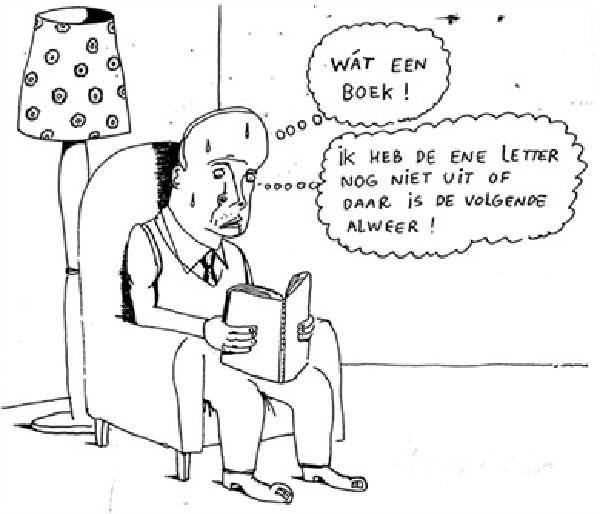 WÁT EEN
BOEK!
IK HEB DE ENE LETTER
NOG NIET UIT OF
DAAR IS DE VOLGENDE
ALWEER!